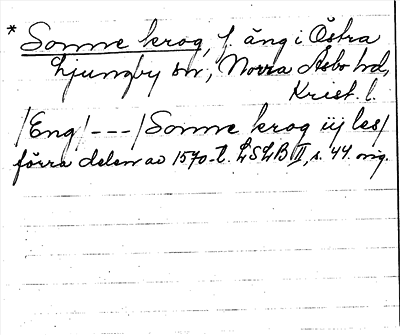 * Somme krog, f. äng i Östra
Ljungby sn, Norra Åsbo hd,
Krist. l.
/Eng/ --- /Somme krog iij les/
förra delen av 1570-t. LSLB II, s. 44. orig.